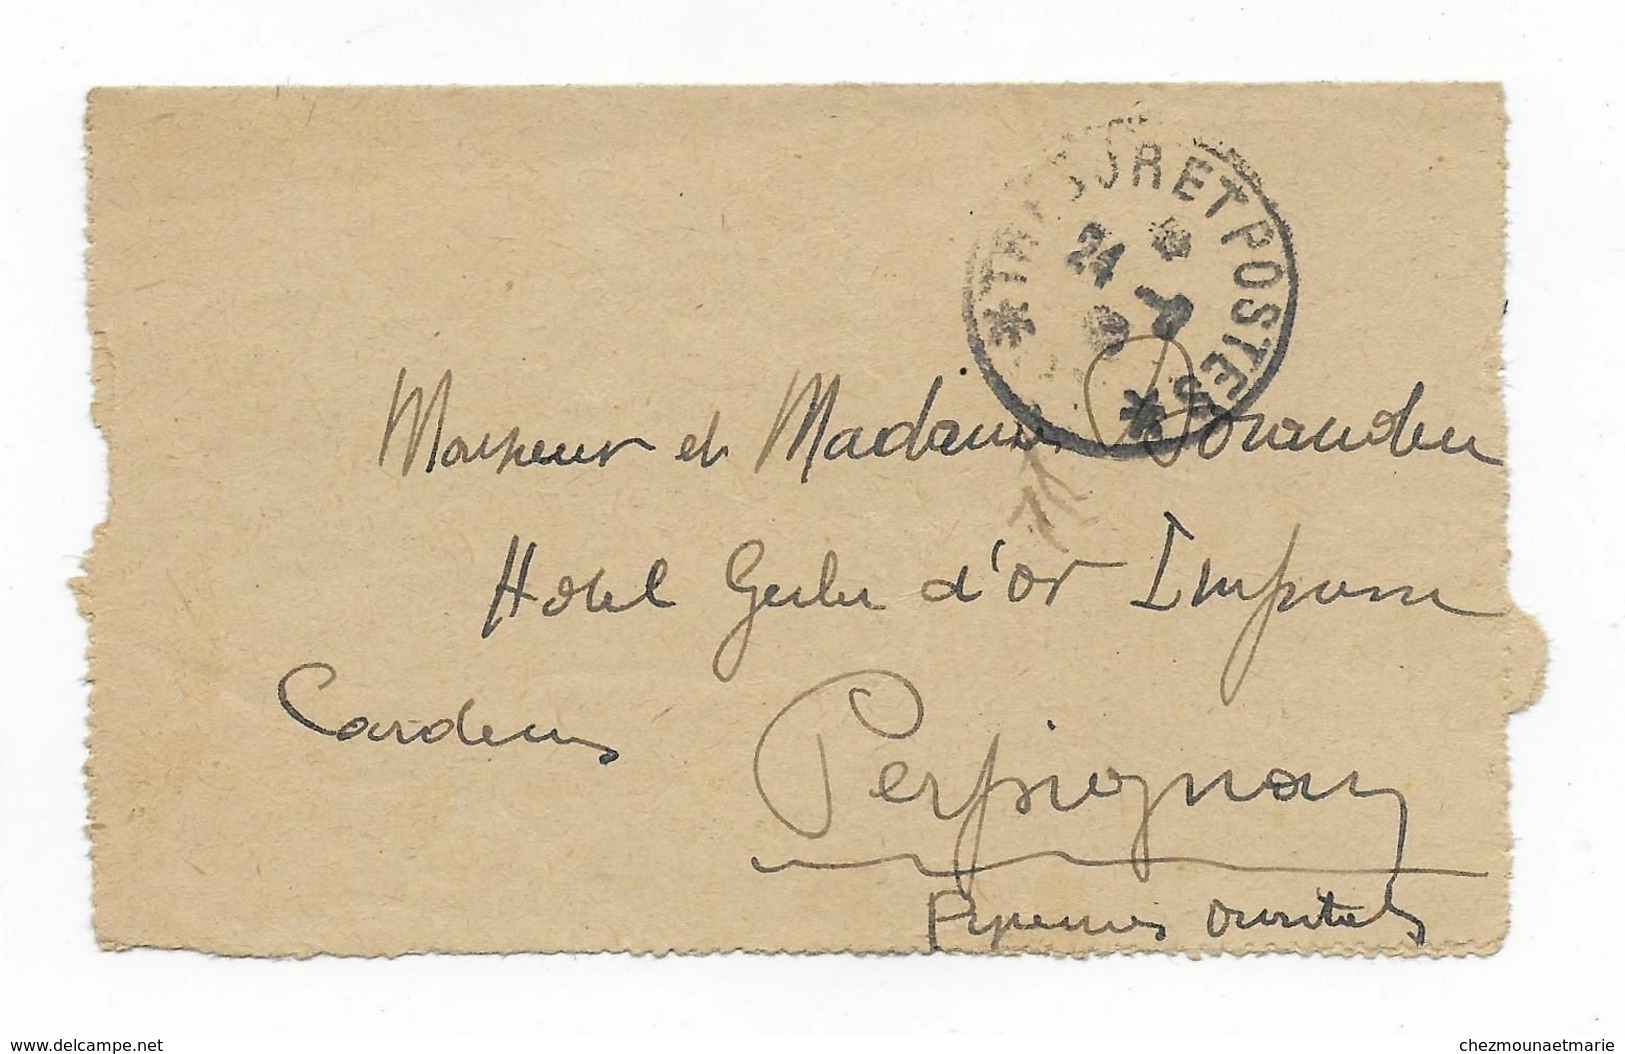 * TRESOR ET POSTES *
24
Monsieur et Madame
Hotel Gerbe d'or Impasse
Cardeurs
Perpignan
Pyrenees Orientales
www.delcampe.net
chezmounaetmarie